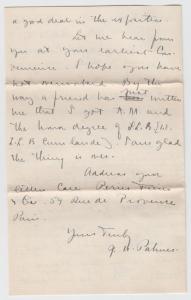 a good deal in the
Let me hear from
you at your earliest Con-
venience. I hope you have
not By the
way a friend has just written
me that I got A.M. and
the Honor degree of LL.B (i.e.
LL.B Cum laude). I am glad
the thing is over.
Address your
letters Care Perier
& Co. 59 Rue de Provence
Paris.
Yours Truly